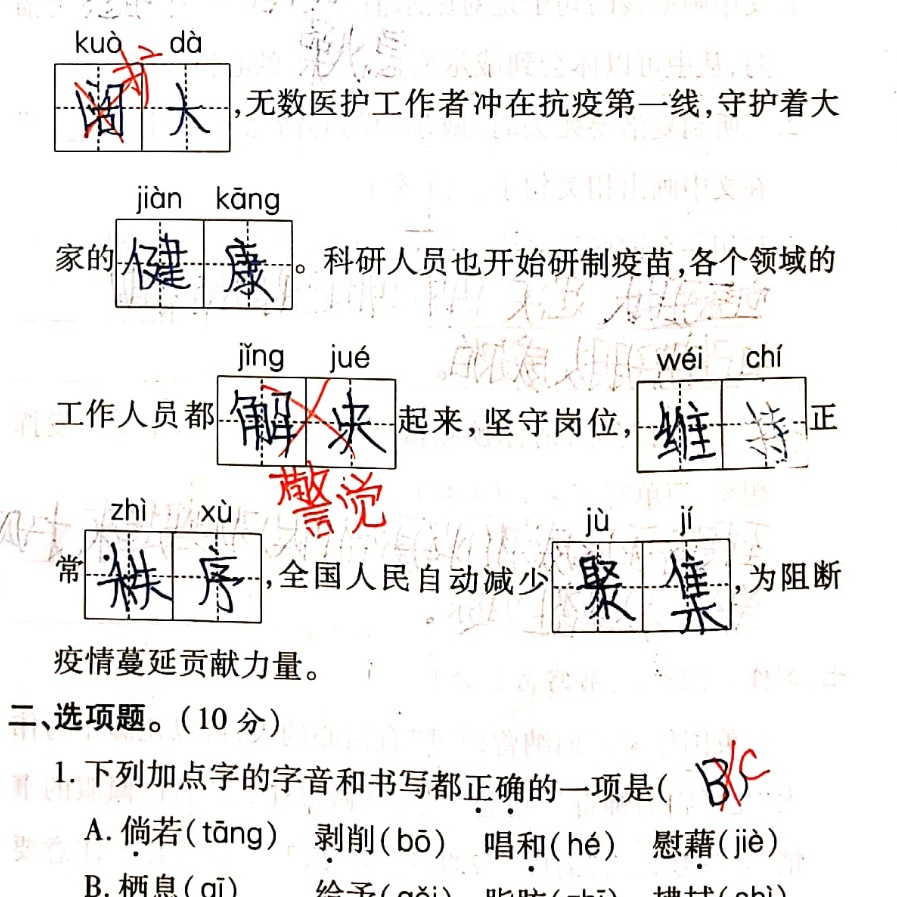 kuò dà
扩
阔大,无数医护工作者冲在抗疫第一线,守护着大
jiàn kāng
家的健康。科研人员也开始研制疫苗,各个领域的
jǐng jué wéi chí
工作人员都解决起来,坚守岗位,维持正
警觉
zhì xù jù jí
常秩序,全国人民自动减少聚集,为阻断
疫情蔓延贡献力量。
二、选项题。(10 分)
1. 下列加点字的字音和书写都正确的一项是( B C
A. 倘若(tāng) 剥削(bō) 唱和(hé) 慰藉(jiè)
B. 栖息(qī) 给予(gěi) 脂肪(zhī)